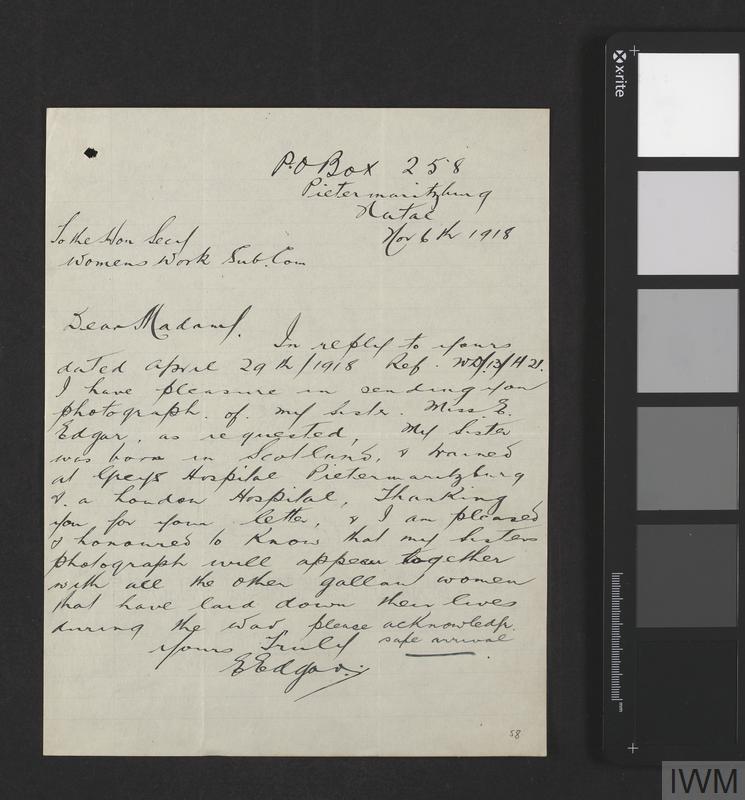 P.O Box 258
Pietermaritzburg
Natal
Nov 6th 1918
To the Hon Secy
Womens Work Sub. Com
Dear Madam.
In reply to yours
dated April 29th/1918 Ref.
I have pleasure in sending you
photograph. of. my sister. Miss E.
Edgar, as requested, My Sister
was born in Scotland, & trained
at Greys Hospital Pietermaritzburg
&. a London Hospital, Thanking
you for your letter, & I am pleased
& honoured to Know that my sisters
photograph will appear together
with all the other gallan women
that have laid down their lives
during the war, please acknowledge.
safe arrival
yours Truly
E Edgar.
58
x·rite
mm
IWM